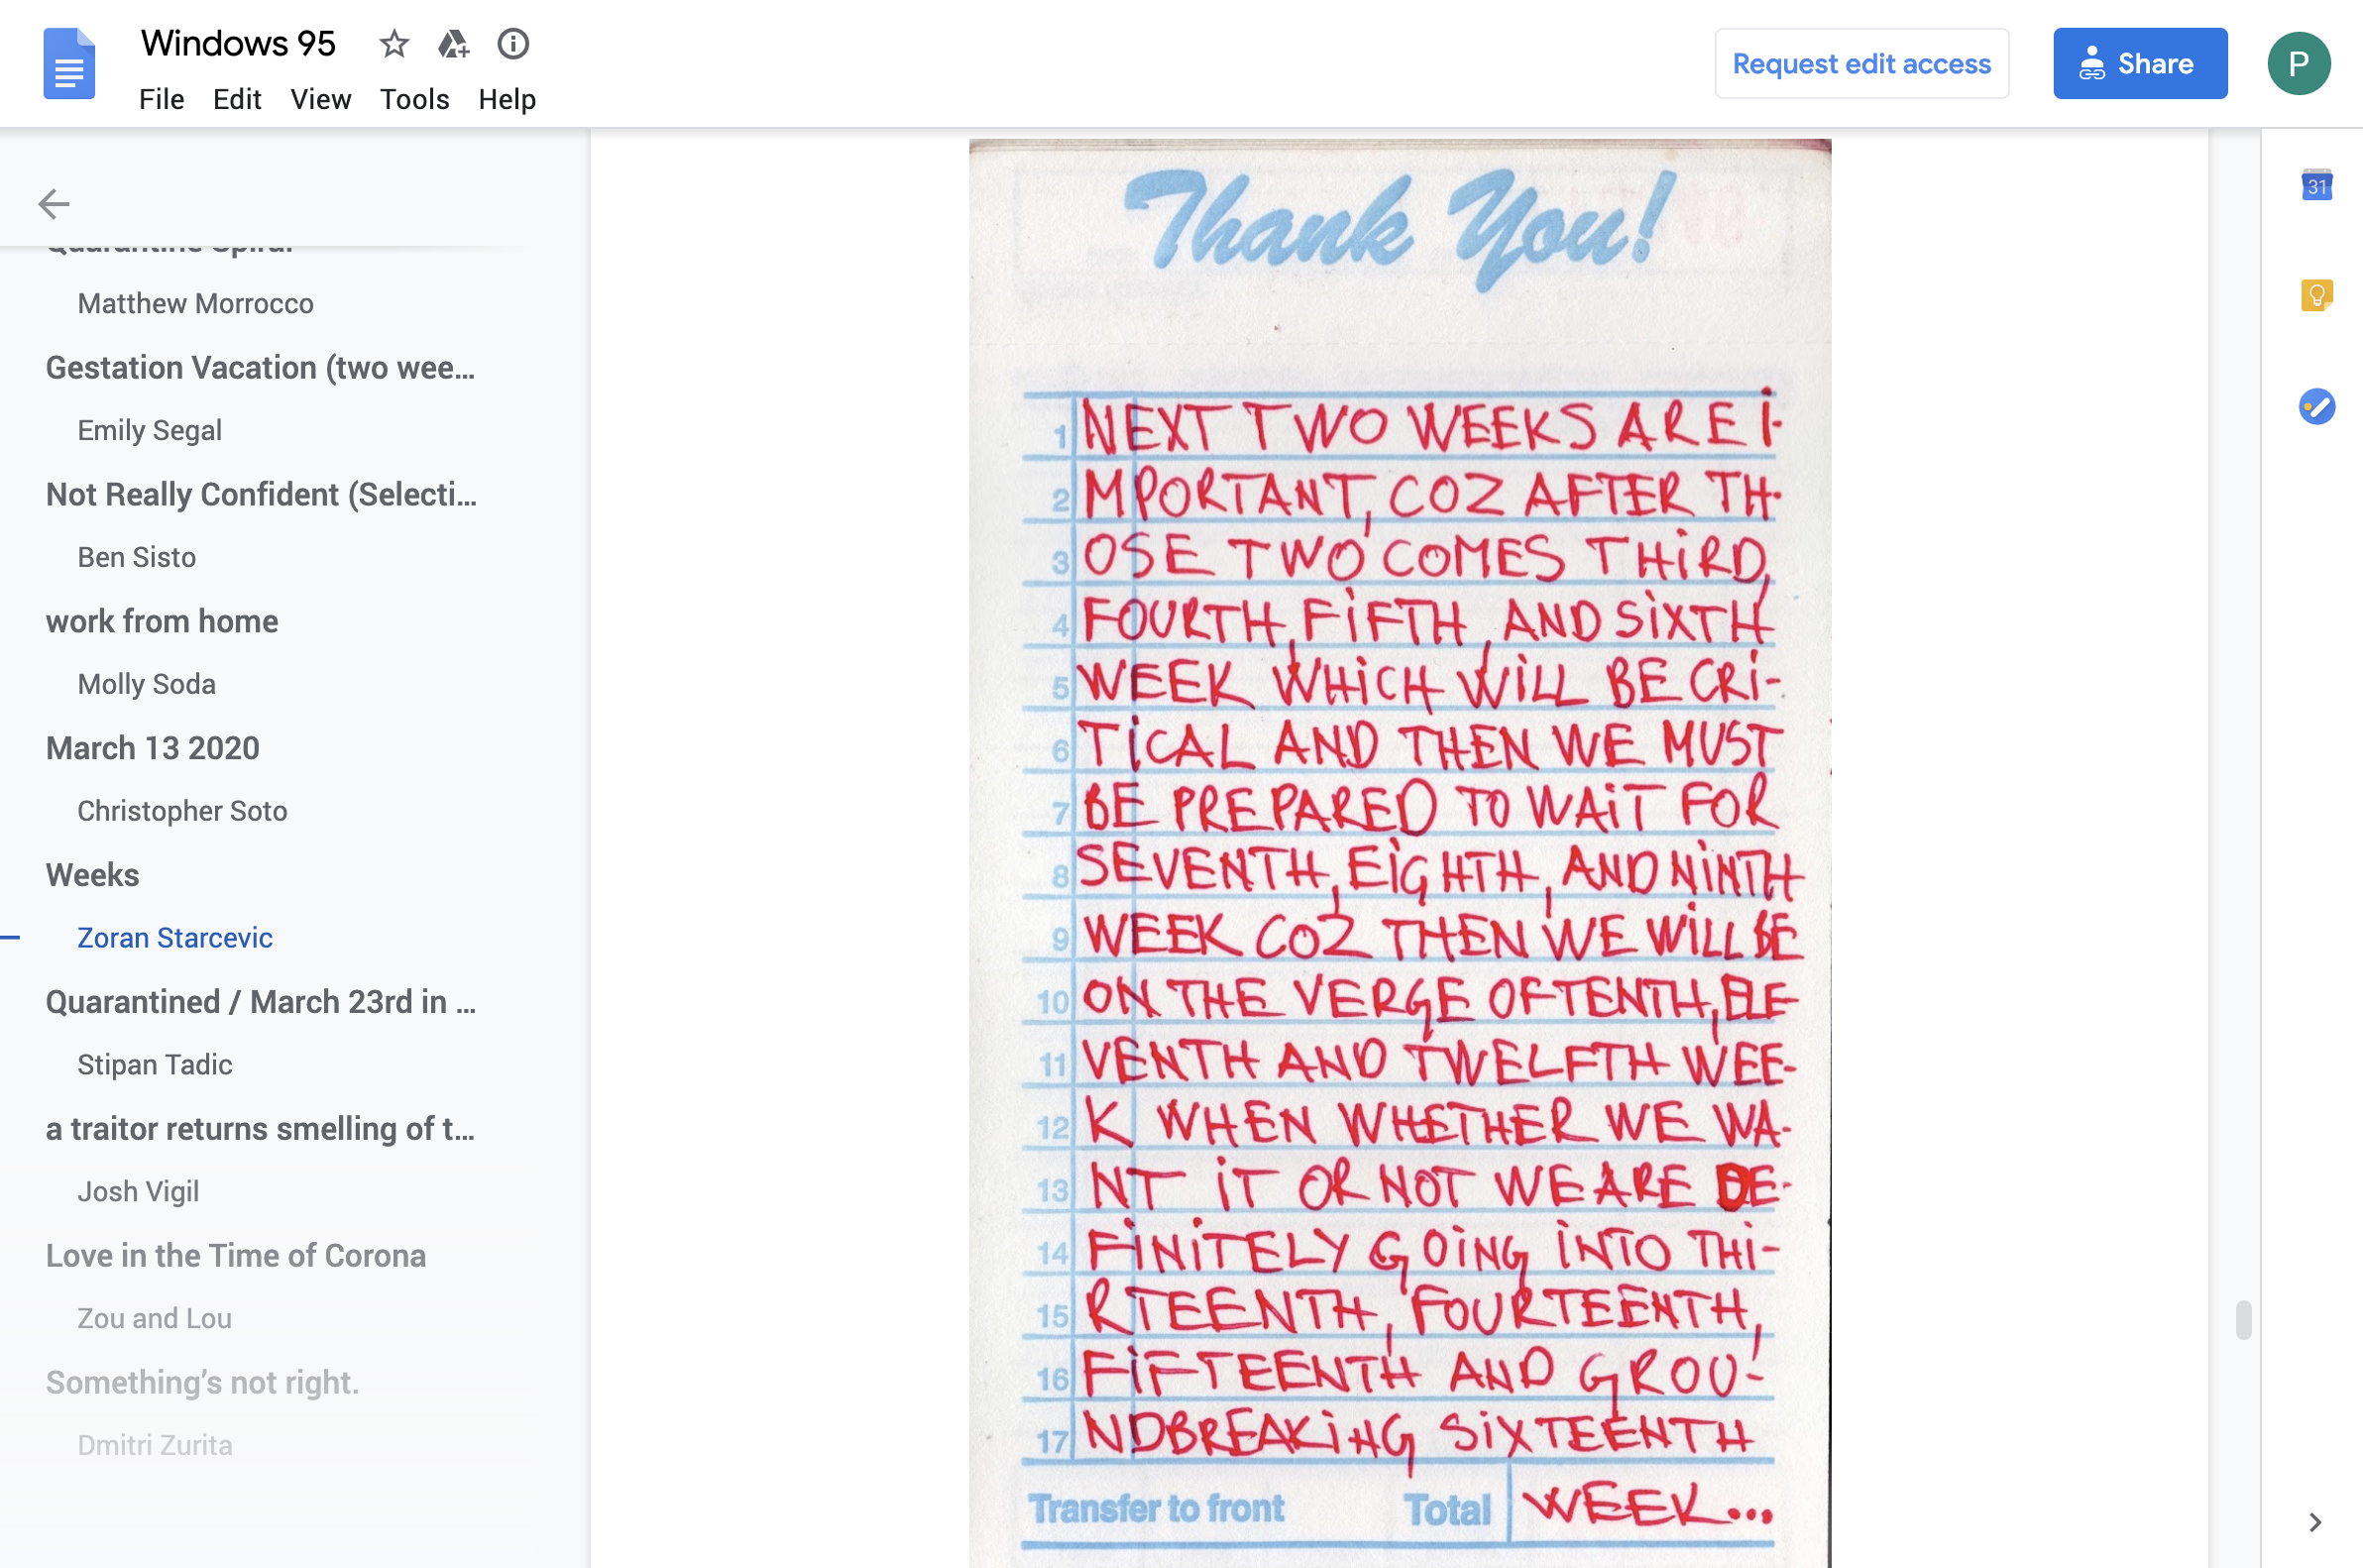 Windows 95
Request edit access
Share
P
File Edit View Tools Help
31
Matthew Morrocco
Gestation Vacation (two wee...
Emily Segal
Not Really Confident (Selecti...
Ben Sisto
work from home
Molly Soda
March 13 2020
Christopher Soto
Weeks
Zoran Starcevic
Quarantined / March 23rd in ...
Stipan Tadic
a traitor returns smelling of t...
Josh Vigil
Love in the Time of Corona
Zou and Lou
Something’s not right.
Dmitri Zurita
Thank You!
1 NEXT TWO WEEKS ARE I-
2 MPORTANT, COZ AFTER TH-
3 OSE TWO COMES THIRD,
4 FOURTH, FIFTH, AND SIXTH
5 WEEK WHICH WILL BE CRI-
6 TICAL AND THEN WE MUST
7 BE PREPARED TO WAIT FOR
8 SEVENTH, EIGHTH, AND NINTH
9 WEEK COZ THEN WE WILL BE
10 ON THE VERGE OF TENTH, ELE-
11 VENTH AND TWELFTH WEE-
12 K WHEN WHETHER WE WA-
13 NT IT OR NOT WE ARE DE-
14 FINITELY GOING INTO THI-
15 RTEENTH, FOURTEENTH,
16 FIFTEENTH AND GROU-
17 NDBREAKING SIXTEENTH
Transfer to front Total WEEK...